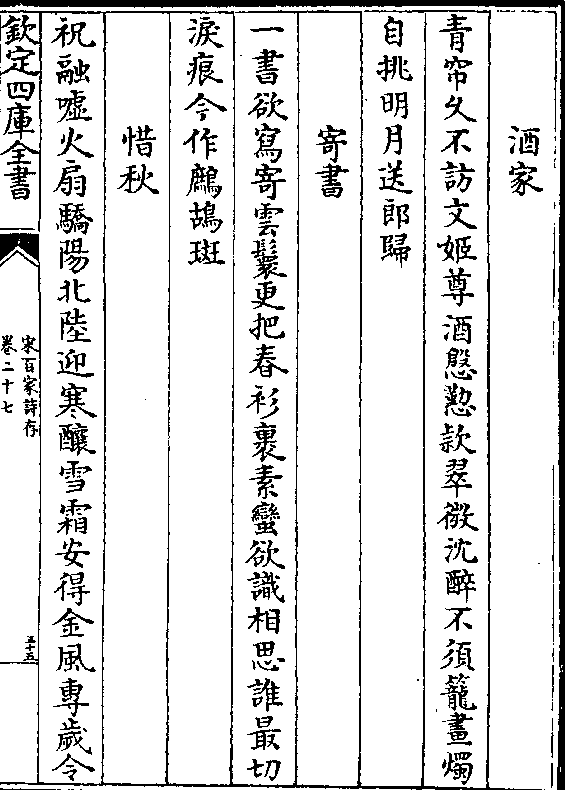 酒家
青帘久不訪文姬尊酒慇懃款翠微沈醉不須籠畫燭
自挑明月送郎歸
寄書
一書欲寫寄雲鬟更把春衫裹素蠻欲識相思誰最切
淚痕今作鷓鴣斑
惜秋
祝融噓火扇驕陽北陸迎寒釀雪霜安得金風專歲令
欽定四庫全書
宋百家詩存
卷二十七
五十五